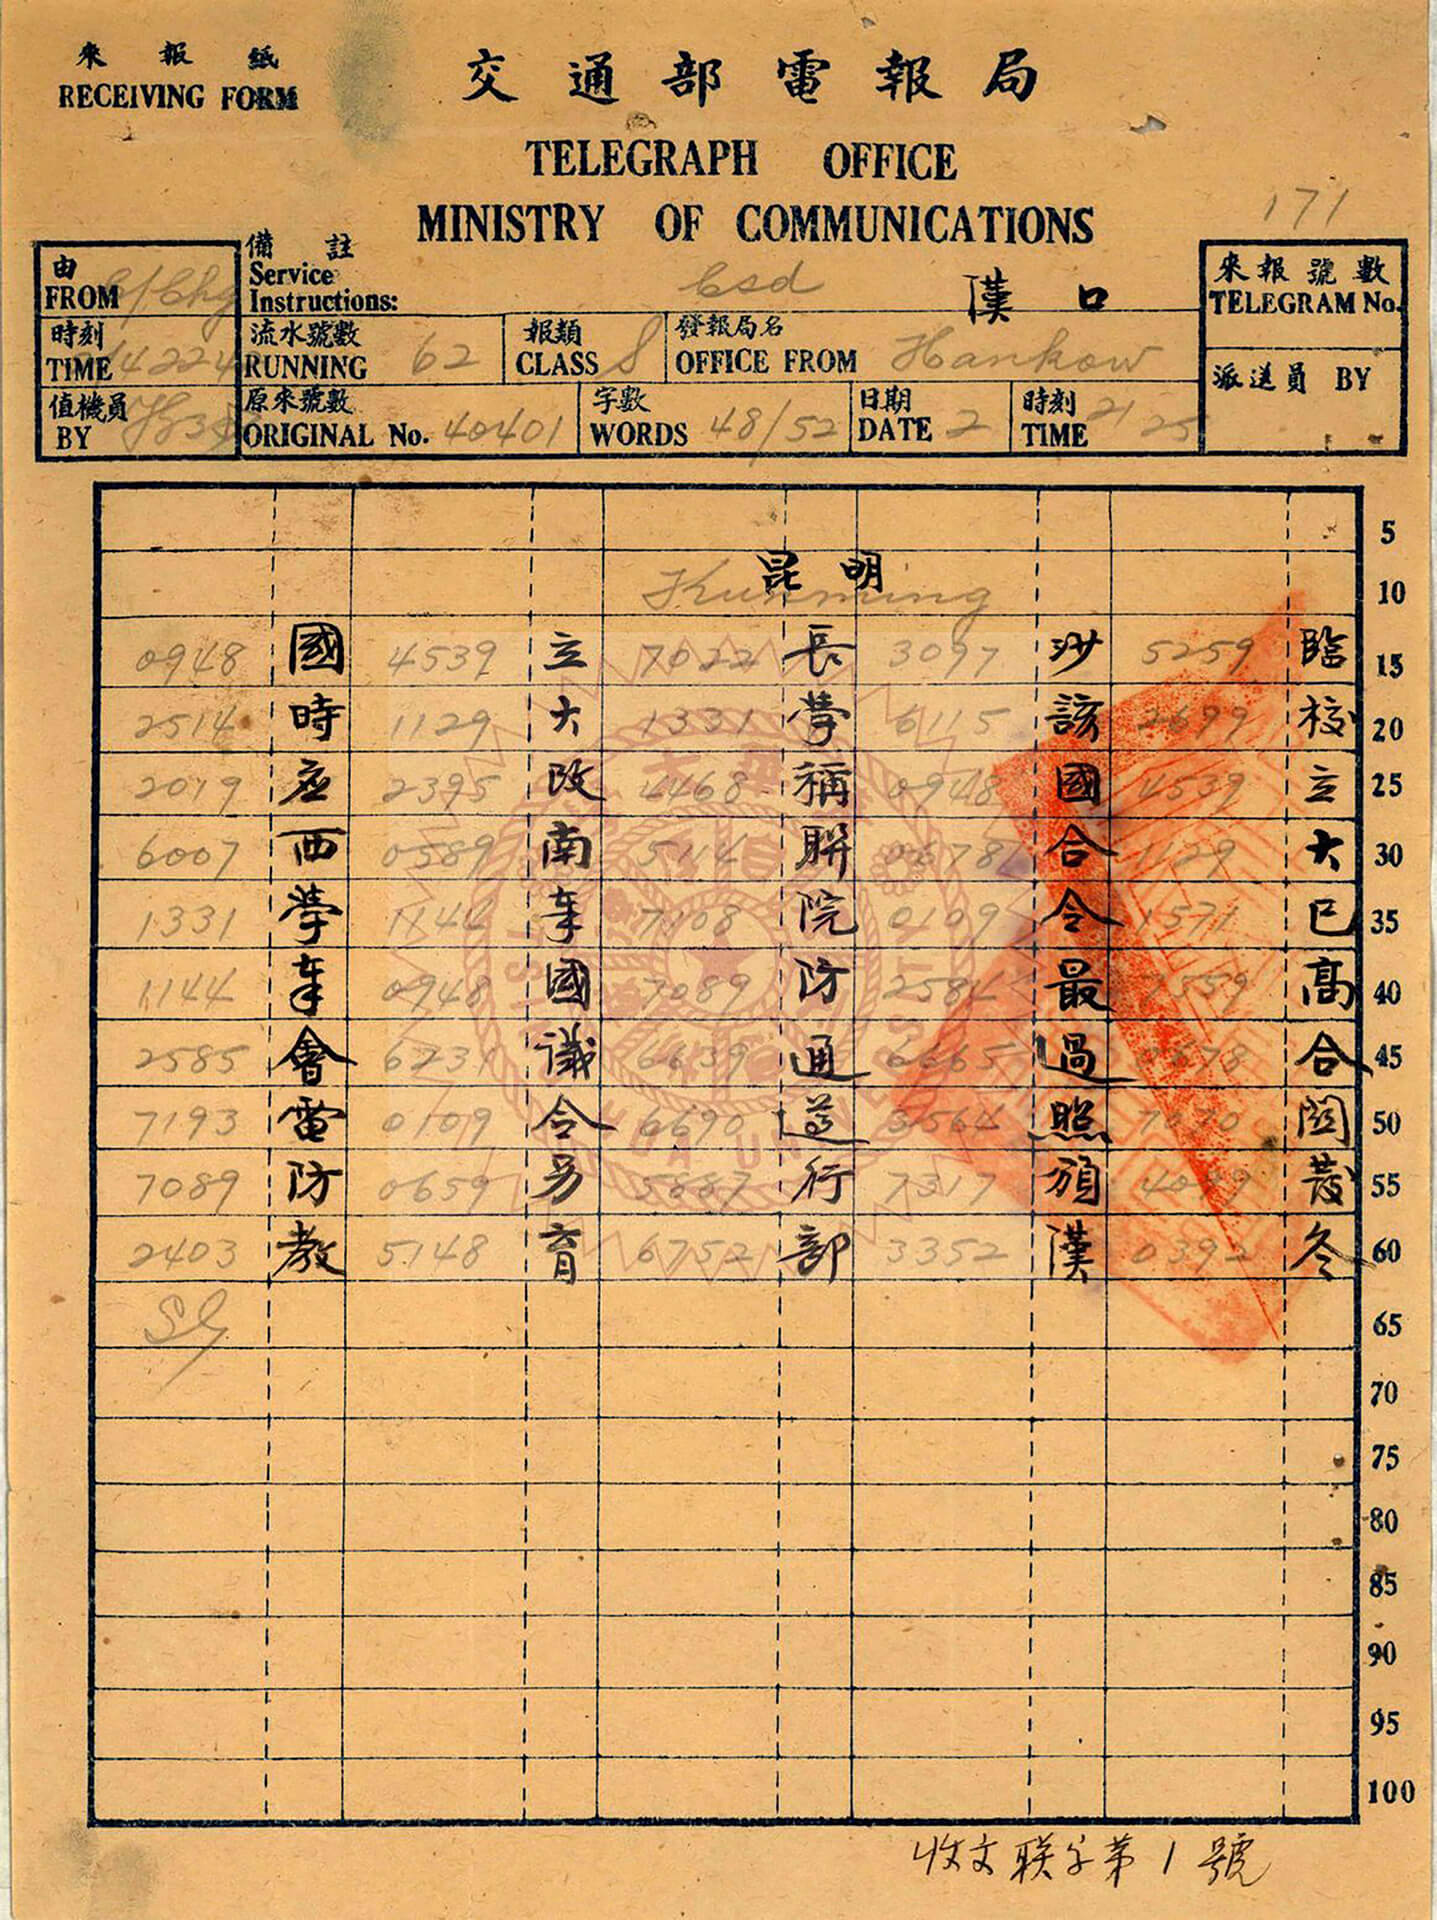 來報紙
RECEIVING FORM
交通部電報局
TELEGRAPH OFFICE
MINISTRY OF COMMUNICATIONS
171
由
FROM
備註
Service
Instructions:
漢口
來報號數
TELEGRAM No.
時刻
TIME
流水號數
RUNNING 62
報類
CLASS S
發報局名
OFFICE FROM Hankow
派送員 BY
值機員
BY
原來號數
ORIGINAL No. 40401
字數
WORDS 48/52
日期
DATE 2
時刻
TIME 21 25
5
昆明
Kunming
10
0948 國 4539 立 7022 長 3097 沙 5259 臨 15
2514 時 1129 大 1331 學 6115 該 2699 校 20
2019 应 2395 改 4468 稱 0948 國 4539 立 25
6007 西 0589 南 5114 聨 0678 合 1129 大 30
1331 學 1144 奉 7108 院 0109 令 1571 已 35
1144 奉 0948 國 7089 防 2584 最 7559 高 40
2585 會 6231 議 6639 通 6665 過 0678 合 45
7193 電 0109 令 6690 遵 3564 照 7070 関 50
7089 防 0659 另 5887 行 7317 頒 4099 發 55
2403 教 5148 育 6752 部 3352 漢 0392 冬 60
65
70
75
80
85
90
95
100
收文联字第1號